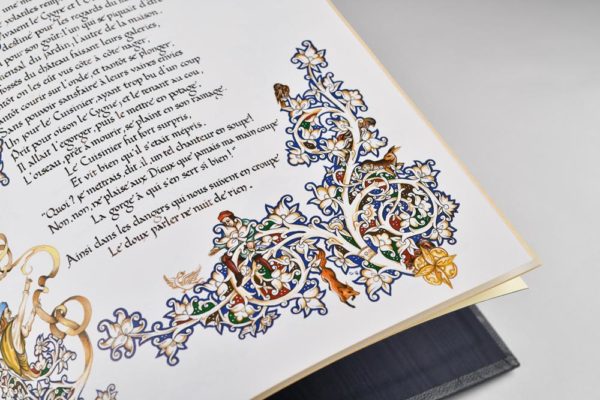 volatiles remp
vivaient le Cygne et l'O
destiné pour les regards du m
pour son goût: l'un qui se piquait d'êt
ensal du jardin, l'autre de la maison.
ossés du château faisant leurs galeries,
tôt on les eût vus côte à côte nager,
tantôt courir sur l'onde, et tantôt se plonger,
ns pouvoir satisfaire à leurs vaines envies
n jour le Cuisinier, ayant trop bu d'un coup
Prit pour oison le Cygne; et le tenant au cou,
Il allait l'égorger, puis le mettre en potage.
L'oiseau, prêt à mourir, se plaint en son ramage.
Le Cuisinier fut fort surpris,
Et vit bien qu'il s'était mépris.
"Quoi? je mettrais, dit-il, un tel chanteur en soupe!
Non, non, ne plaise aux Dieux que jamais ma main coupe
La gorge à qui s'en sert si bien!"
Ainsi dans les dangers qui nous suivent en croupe
Le doux parler ne nuit de rien.